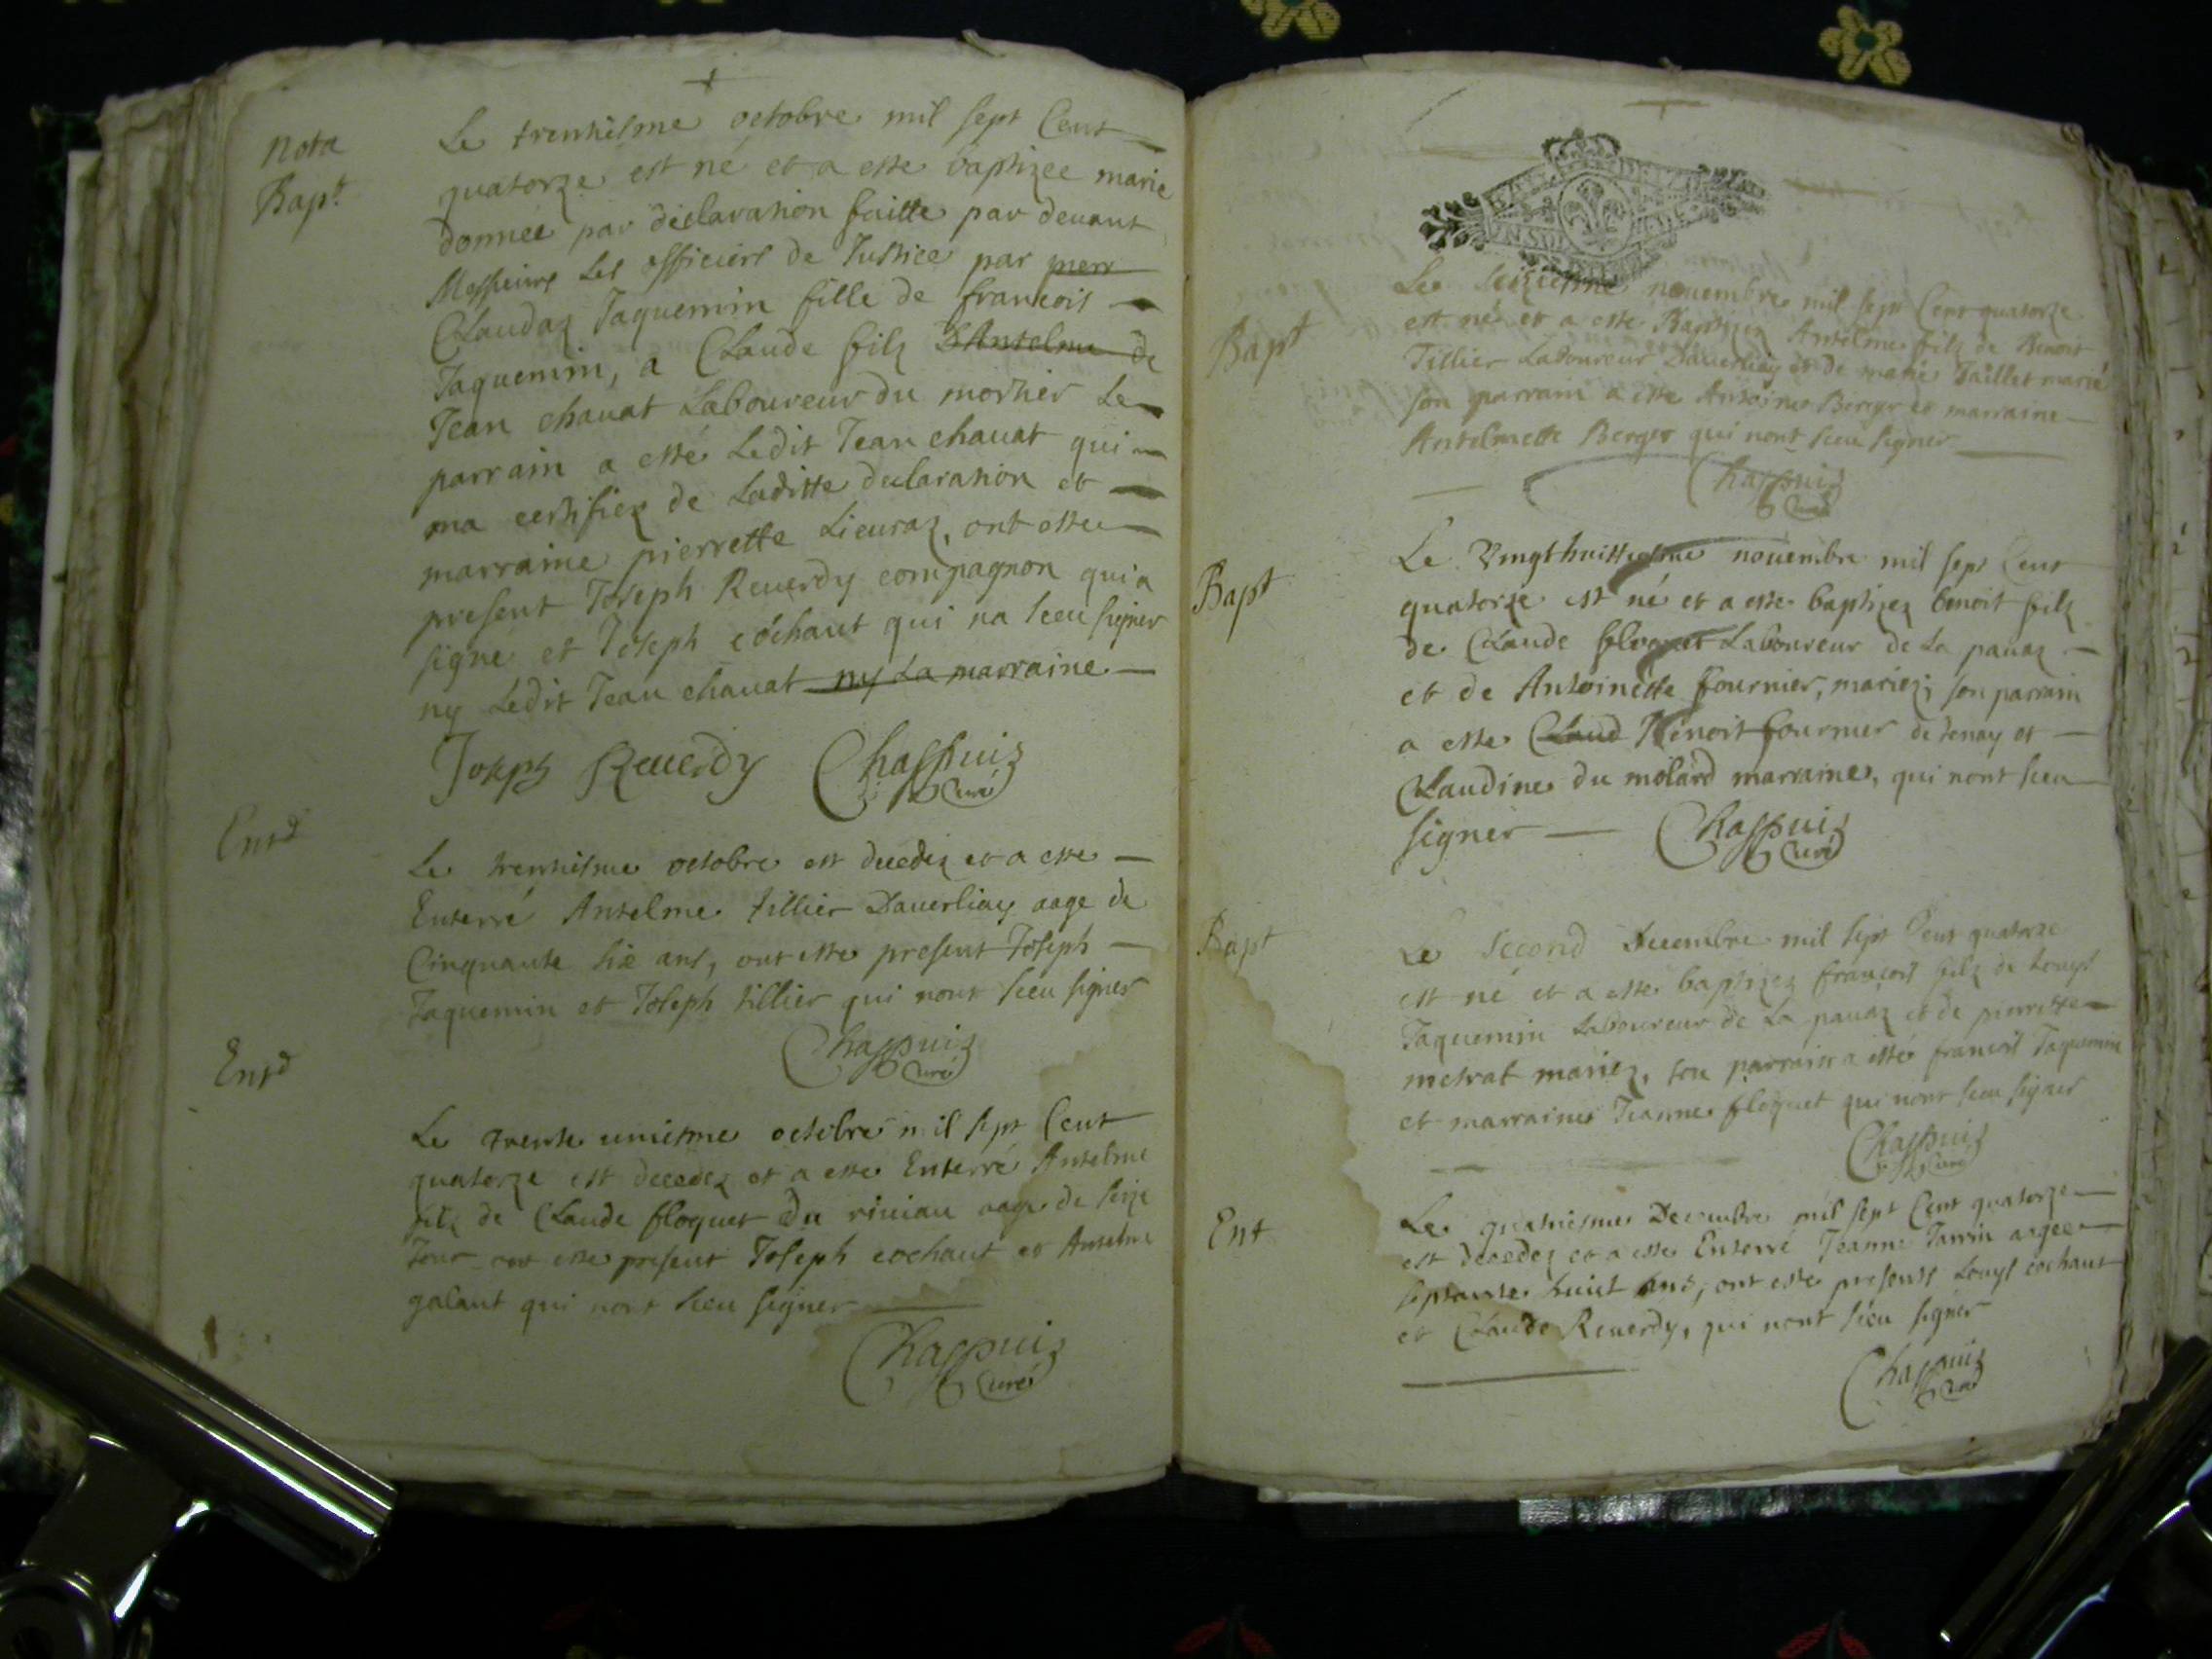 Nota
Bap.t
Le trentiesme octobre mil sept Cent
quatorze est né et a esté baptizee marie
donnee par declaration faitte par devant
Messieurs Les officiers de Justice par
Claudaz Jaquemin fille de francois
Jaquemin, a Claude filz D'Antelme de
Jean chavat Laboureur du mortier Le
parrain a esté Ledit Jean chavat qui
ma certifiez de Laditte declaration et
marraine pierrette Lieuraz, ont este
present Joseph Reverdy compagnon qui a
signé et Joseph cochaut qui na sceu signer
ny Ledit Jean chavat ny La marraine
Joseph Reverdy Chappuiz Curé
Ent.d
Le trentiesme octobre est decedez et a esté
Enterré Antelme tillier Daverliay aage de
Cinquante six ans, ont esté present Joseph
Jaquemin et Joseph tillier qui nont sceu signer
Chappuiz Curé
Ent.d
Le trente uniesme octobre mil sept Cent
quatorze est decedez et a esté Enterré Antelme
filz de Claude floquet Du aage de seize
Jour ont esté present Joseph cochaut et Antelme
galant qui nont sceu signer
Chappuiz Curé
Bapt
Le seiziesme novembre mil sept Cent quatorze
est né et a esté Baptizez Antelme filz de Benoit
Tillier Laboureur Daverliay et de marie Taillet marié
son parrain a esté Antoine Berger et marraine
Antelmette Berger qui nont sceu signer
Chappuiz Curé
Bapt
Le Vingthuittiesme novembre mil sept Cent
quatorze est né et a esté baptizez benoit filz
de Claude floquet Laboureur de La pavaz
et de Antoinette fournier, mariez, son parrain
a esté Claud Benoit fournier de tenay et
Claudine du molard marraine, qui nont sceu
signer Chappuiz Curé
Bapt
Le second Decembre mil sept Cent quatorze
est né et a esté baptizez françois filz de Louys
Jaquemin Laboureur de La pavaz et de pierrette
metrat mariez, son parrain a esté francois Jaquemin
et marraine Jeanne floquet qui nont sceu signer
Chappuiz Curé
Ent
Le quatriesme Decembre mil sept Cent quatorze
est decedez et a esté Enterré Jeanne aagee
septante huict ans, ont esté presents Louys cochaut
et Claude Reverdy, qui nont sceu signer
Chappuiz Curé